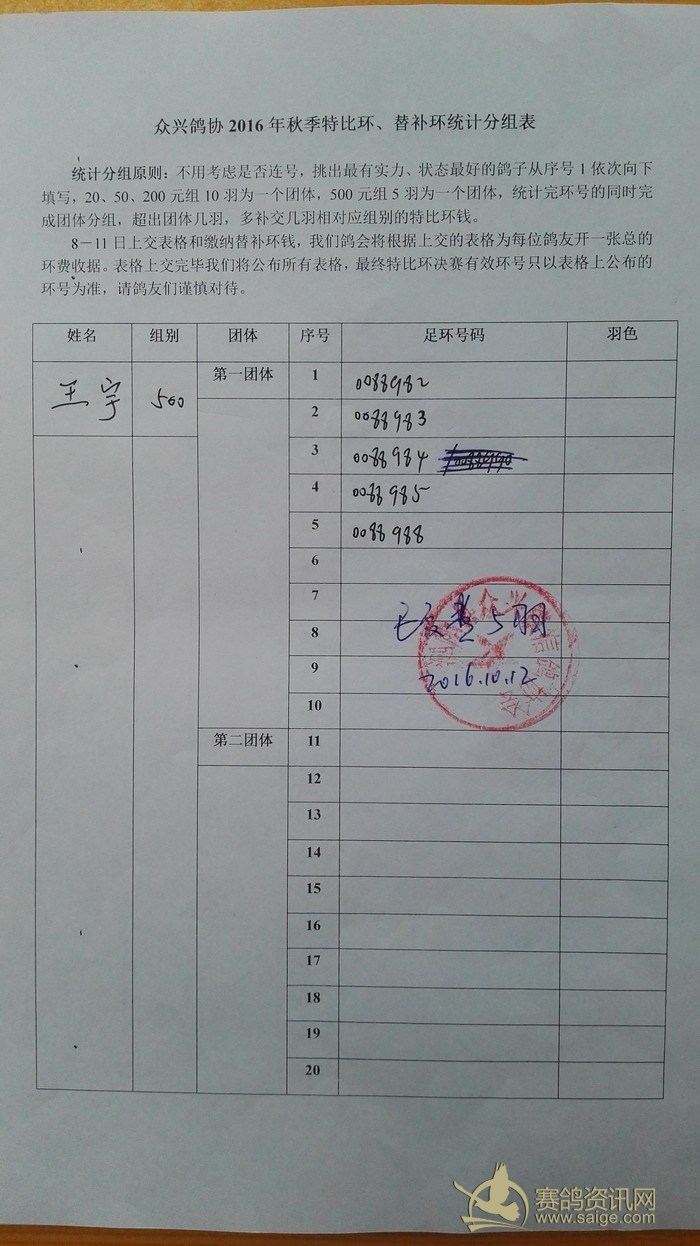 众兴鸽协 2016 年秋季特比环、替补环统计分组表
统计分组原则：不用考虑是否连号，挑出最有实力、状态最好的鸽子从序号 1 依次向下
填写，20、50、200 元组 10 羽为一个团体，500 元组 5 羽为一个团体，统计完环号的同时完
成团体分组，超出团体几羽，多补交几羽相对应组别的特比环钱。
8－11 日上交表格和缴纳替补环钱，我们鸽会将根据上交的表格为每位鸽友开一张总的
环费收据。表格上交完毕我们将公布所有表格，最终特比环决赛有效环号只以表格上公布的
环号为准，请鸽友们谨慎对待。
姓名 组别 团体 序号 足环号码 羽色
王宇 500 第一团体 1 0088982
2 0088983
3 0088984
4 0088985
5 0088988
6
7
8
9
10
5羽
2016.10.12
第二团体 11
12
13
14
15
16
17
18
19
20
赛鸽资讯网
www.saige.com